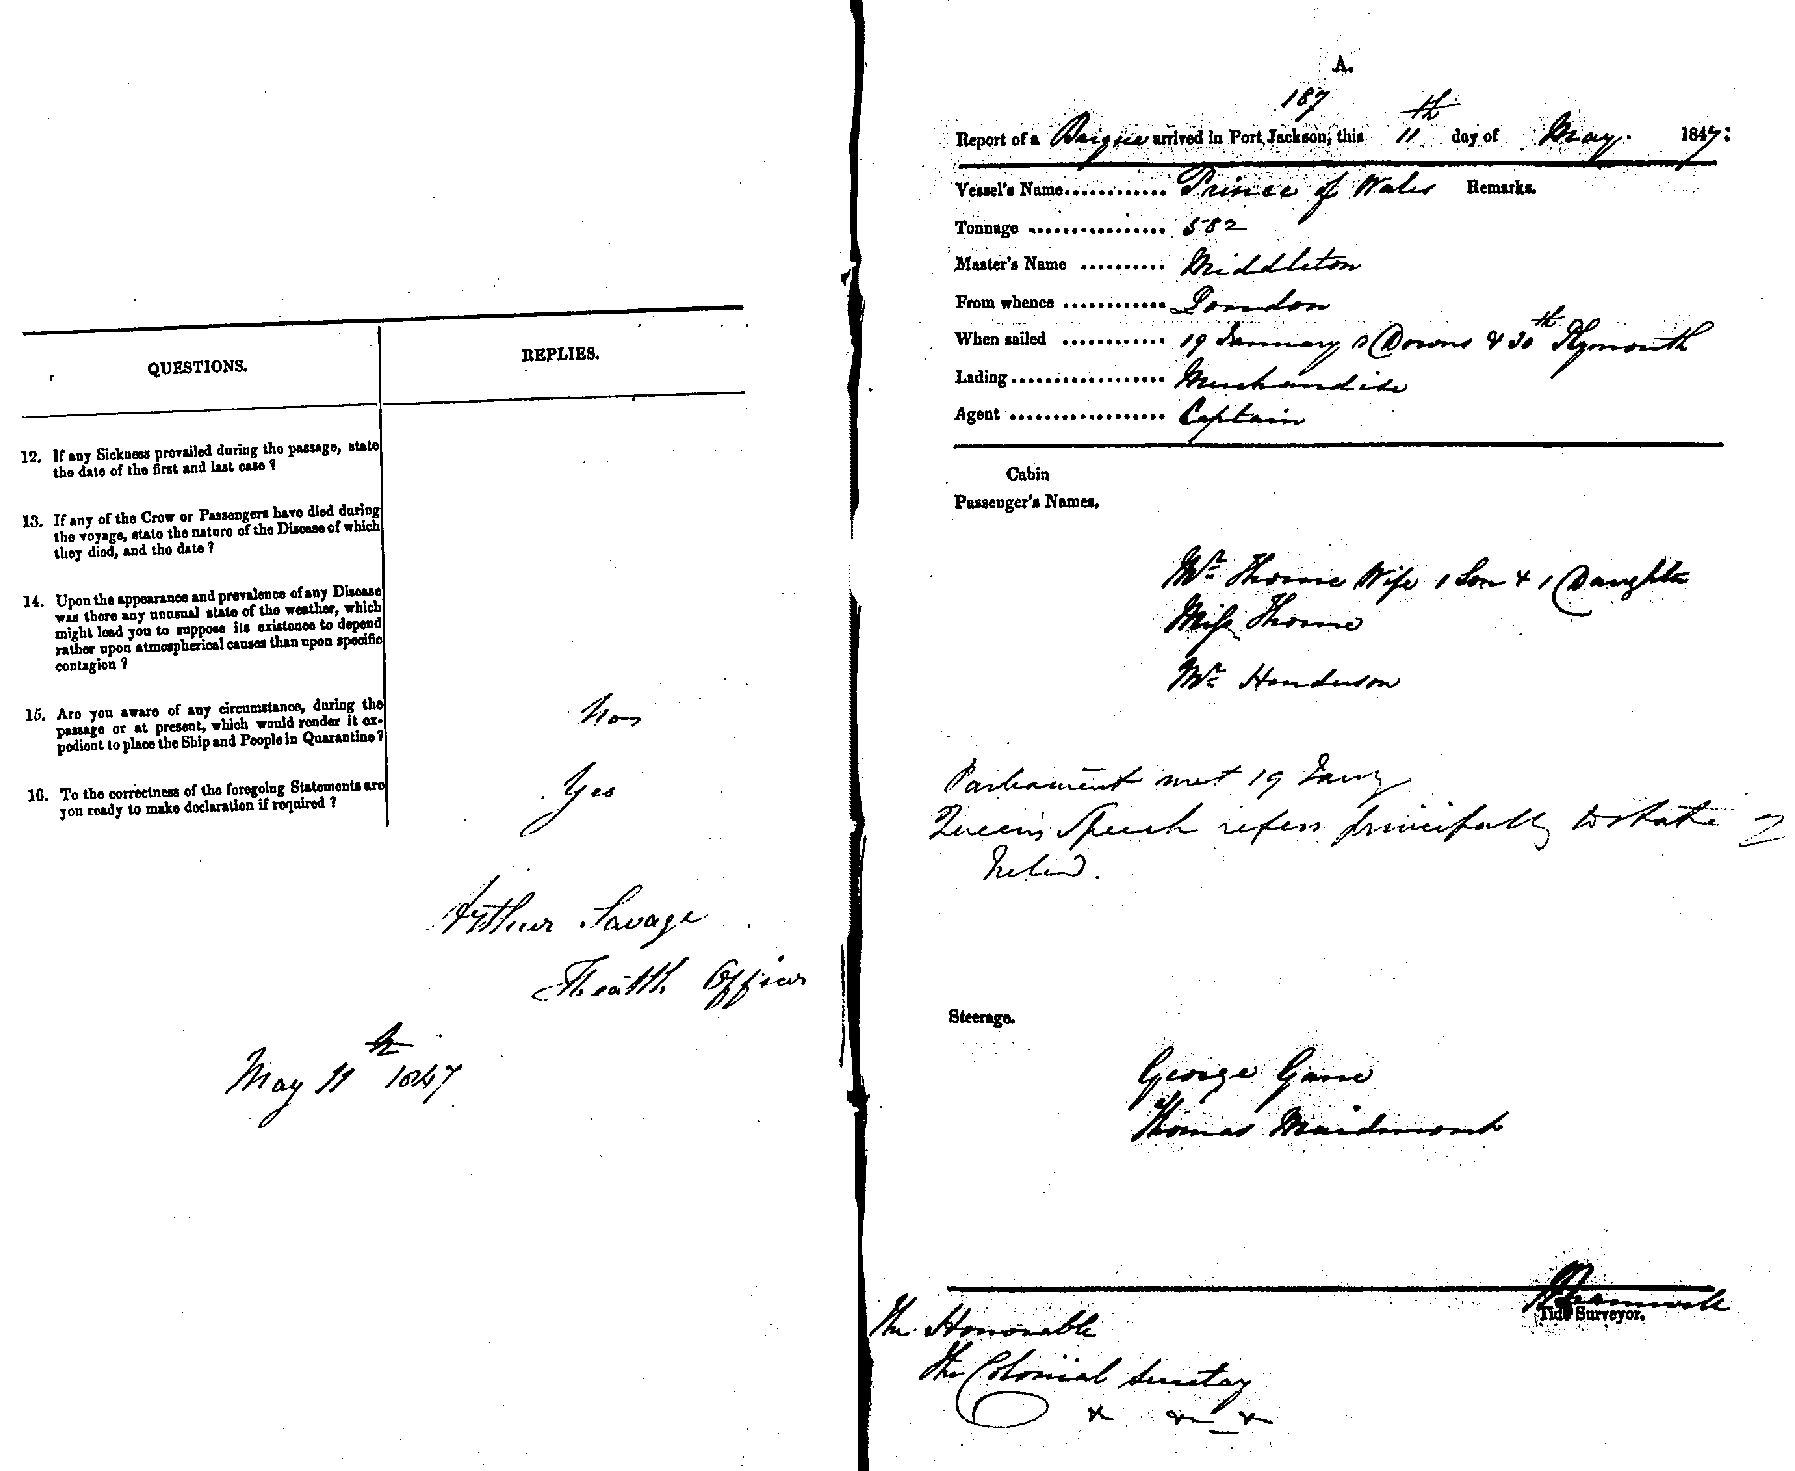 QUESTIONS.
REPLIES.
12. If any Sickness prevailed during the passage, state
the date of the first and last case ?
13. If any of the Crew or Passengers have died during
the voyage, state the nature of the Disease of which
they died, and the date ?
14. Upon the appearance and prevalence of any Disease
was there any unusual state of the weather, which
might lead you to suppose its existence to depend
rather upon atmospherical causes than upon specific
contagion ?
15. Are you aware of any circumstance, during the
passage or at present, which would render it ex-
pedient to place the Ship and People in Quarantine ?
16. To the correctness of the foregoing Statements are
you ready to make declaration if required ?
Yes
Arthur Savage
Health Officer
May 11th 1847
A.
187
Report of a Barque arrived in Port Jackson, this 11th day of May. 1847:
Vessel's Name............ Prince of Wales Remarks.
Tonnage ................ 582
Master's Name .......... Middleton
From whence ............ London
When sailed ............ 19 January Downs & 30th Plymouth
Lading.................. Merchandise
Agent .................. Captain
Cabin
Passenger's Names,
Mr Thorne Wife 1 Son & 1 Daughter
Miss Thorne
Mr Henderson
Parliament met 19 Jany
Queens Speech refers principally to state of
Ireland.
Steerage.
George Gane
Thomas Maidment
Tide Surveyor.
The Honorable
The Colonial Secretary
&c &c &c